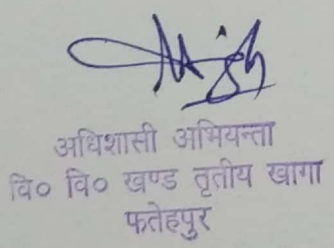 अधिशासी अभियन्ता
वि० वि० खण्ड तृतीय खागा
फतेहपुर